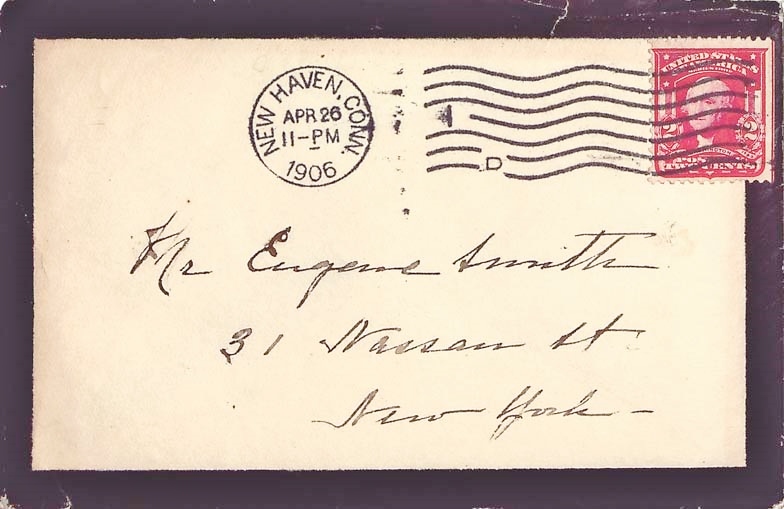 NEW HAVEN, CONN.
APR 26
11-PM
1906
D
UNITED STATES
OF AMERICA
2 2
TWO CENTS
Mr Eugene Smith
31 Nassau St
New York